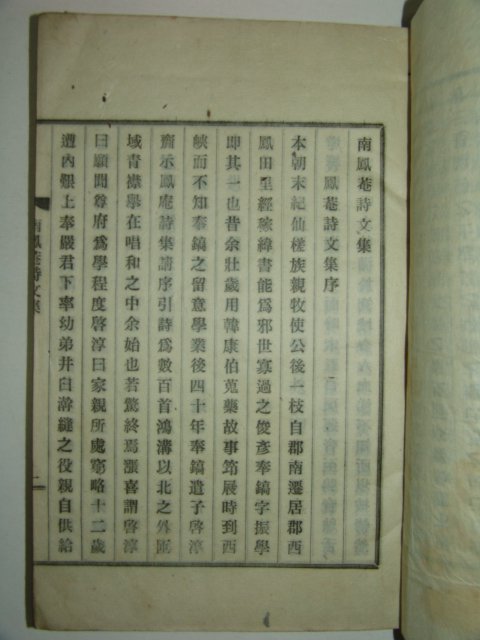 南鳳菴詩文集
鳳菴詩文集序
本朝末紀仙槎族親牧使公後一枝自郡南遷居郡西
鳳田里經稼緯書能爲邪世寡過之俊彥奉鎬字振學
卽其一也昔余壯歲用韓康伯蒐藥故事筇屐時到西
峽而不知奉鎬之留意學業後四十年奉鎬遺子啓淳
齎示鳳庵詩集請序引詩爲數百首鴻溝以北之外匝
域靑襟擧在唱和之中余始也若驚終焉漲喜謂啓淳
曰願聞尊府爲學程度啓淳曰家親所處窮略十二歲
遭內艱上奉嚴君下率幼弟井臼澣縫之役親自供給
南鳳菴詩文集